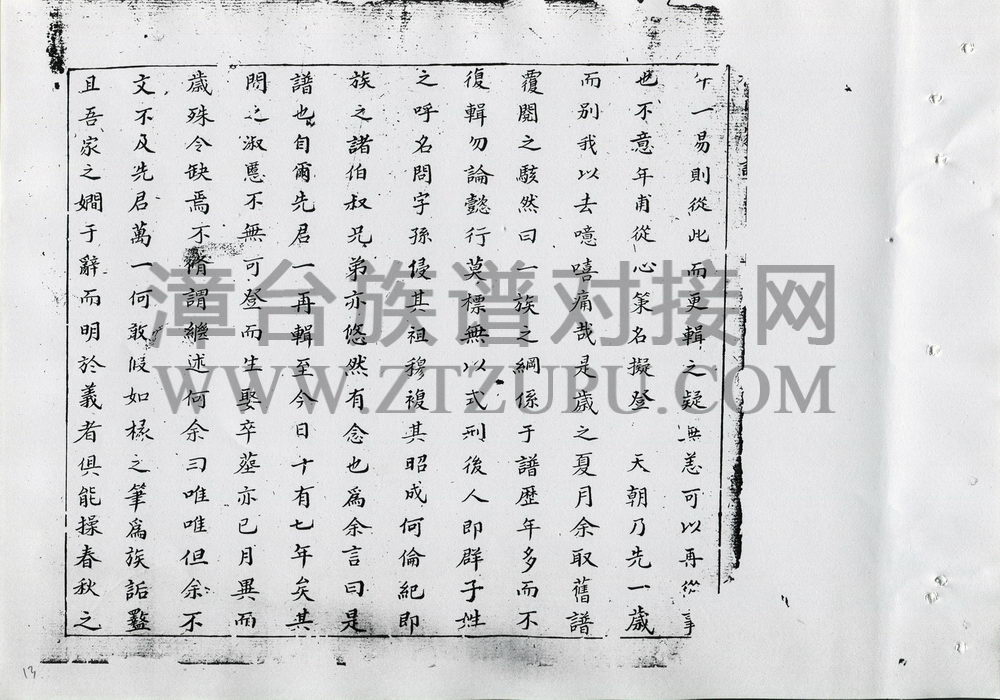 一易則從此而更輯之疑無恙可以再從事
也不意年甫從心策名擬登　天朝乃先一歲
而别我以去噫嘻痛哉是歲之夏月余取舊譜
覆閱之駭然曰一族之綱係于譜歷年多而不
復輯勿論懿行莫標無以式刑後人即群子姓
之呼名問字孫侵其祖穆複其昭成何倫紀即
族之諸伯叔兄弟亦悠然有念也為余言曰是
譜也自爾先君一再輯至今日十有七年矣其
間之淑慝不無可登而生娶卒塟亦已月異而
歲殊今缺焉不脩謂繼述何余曰唯唯但余不
文不及先君萬一何敢以如椽之筆為族詬
且吾家之嫺于辭而明於義者俱能操春秋之
漳台族谱对接网
WWW.ZTZUPU.COM
13